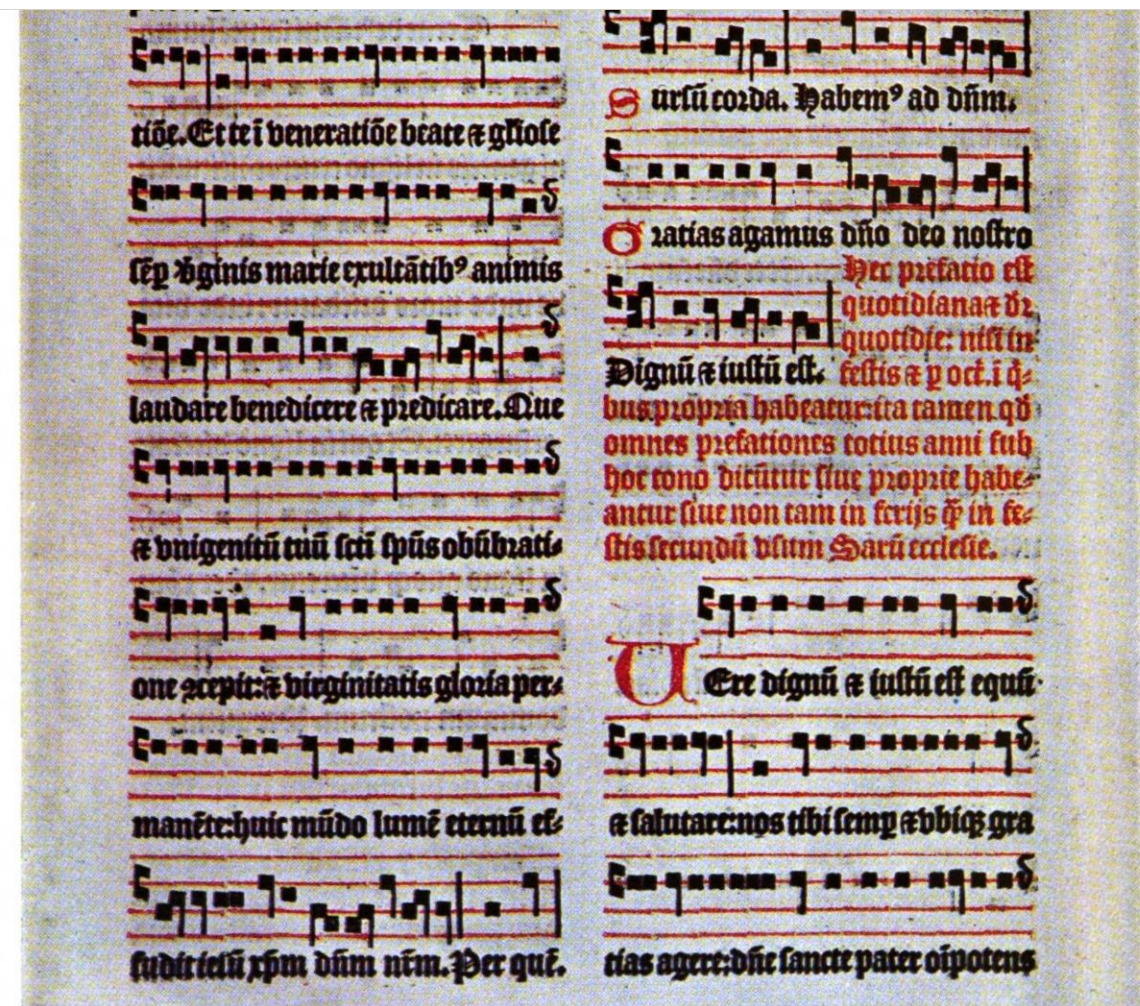 tiōe. Et te ī veneratiōe beate ⁊ gl̄iose
sēp v̓ginis marie exultātib⁹ animis
laudare benedicere ⁊ predicare. Que
⁊ vnigenitū tuū scti sp̄us obūbrati⸗
one ꝯcepit: ⁊ virginitatis gloria per⸗
manēte: huic mūdo lumē eternū ef⸗
fudit iesū xp̄m dn̄m nr̄m. Per quē.
Sursū corda. Habem⁹ ad dn̄m.
Gratias agamus dn̄o deo nostro
Dignū ⁊ iustū est.
Hec prefatio est
quotidiana ⁊ dr̄
quotidie: nisi in
festis ⁊ ꝑ oct. ī q̄⸗
bus propria habeatur: ita tamen qd̄
omnes prefationes totius anni sub
hoc tono dicūtur siue proprie habe⸗
antur siue non tam in ferijs q̄ꝫ in fe⸗
stis secundū vsum Sarū ecclesie.
UEre dignū ⁊ iustū est equū
⁊ salutare: nos tibi semꝑ ⁊ vbiqꝫ gra
tias agere: dn̄e sancte pater oīpotens